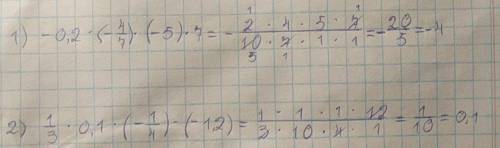 1) -0,2 · (-4/7) · (-5) · 7 = - (2 · 4 · 5 · 7)/(10 · 7 · 1 · 1) = -20/5 = -4
2) 1/3 · 0,1 · (-1/4) · (-12) = (1 · 1 · 1 · 12)/(3 · 10 · 4 · 1) = 1/10 = 0,1